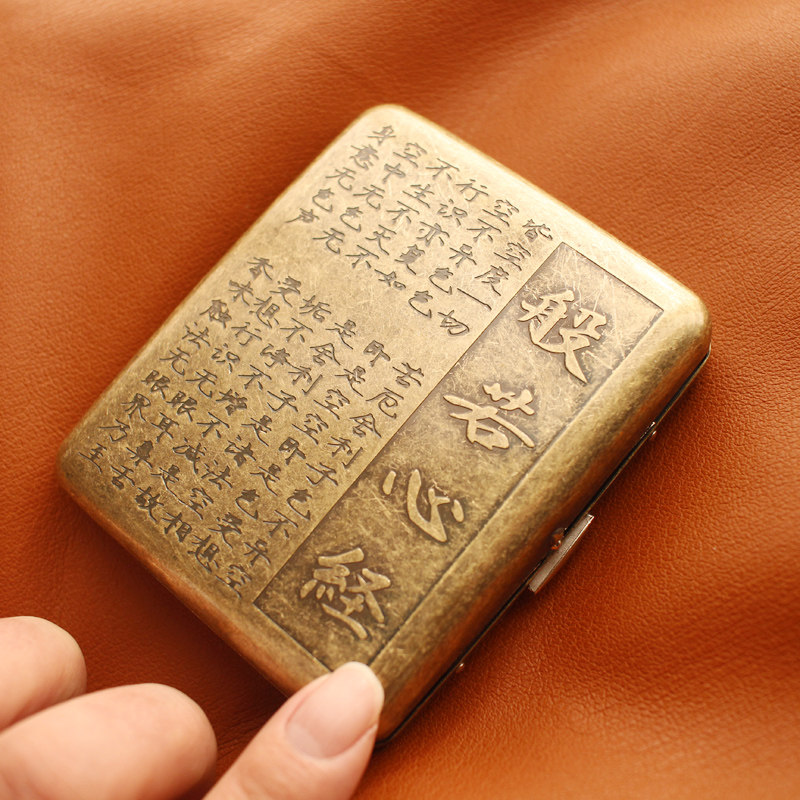 般若心経
皆空度一切苦厄舍利子色不异空
空不异色色即是空空即是色受想
行识亦复如是舍利子是诸法空相
不生不灭不垢不净不增不减是故
空中无色无受想行识无眼耳鼻舌
身意无色声香味触法无眼界乃至